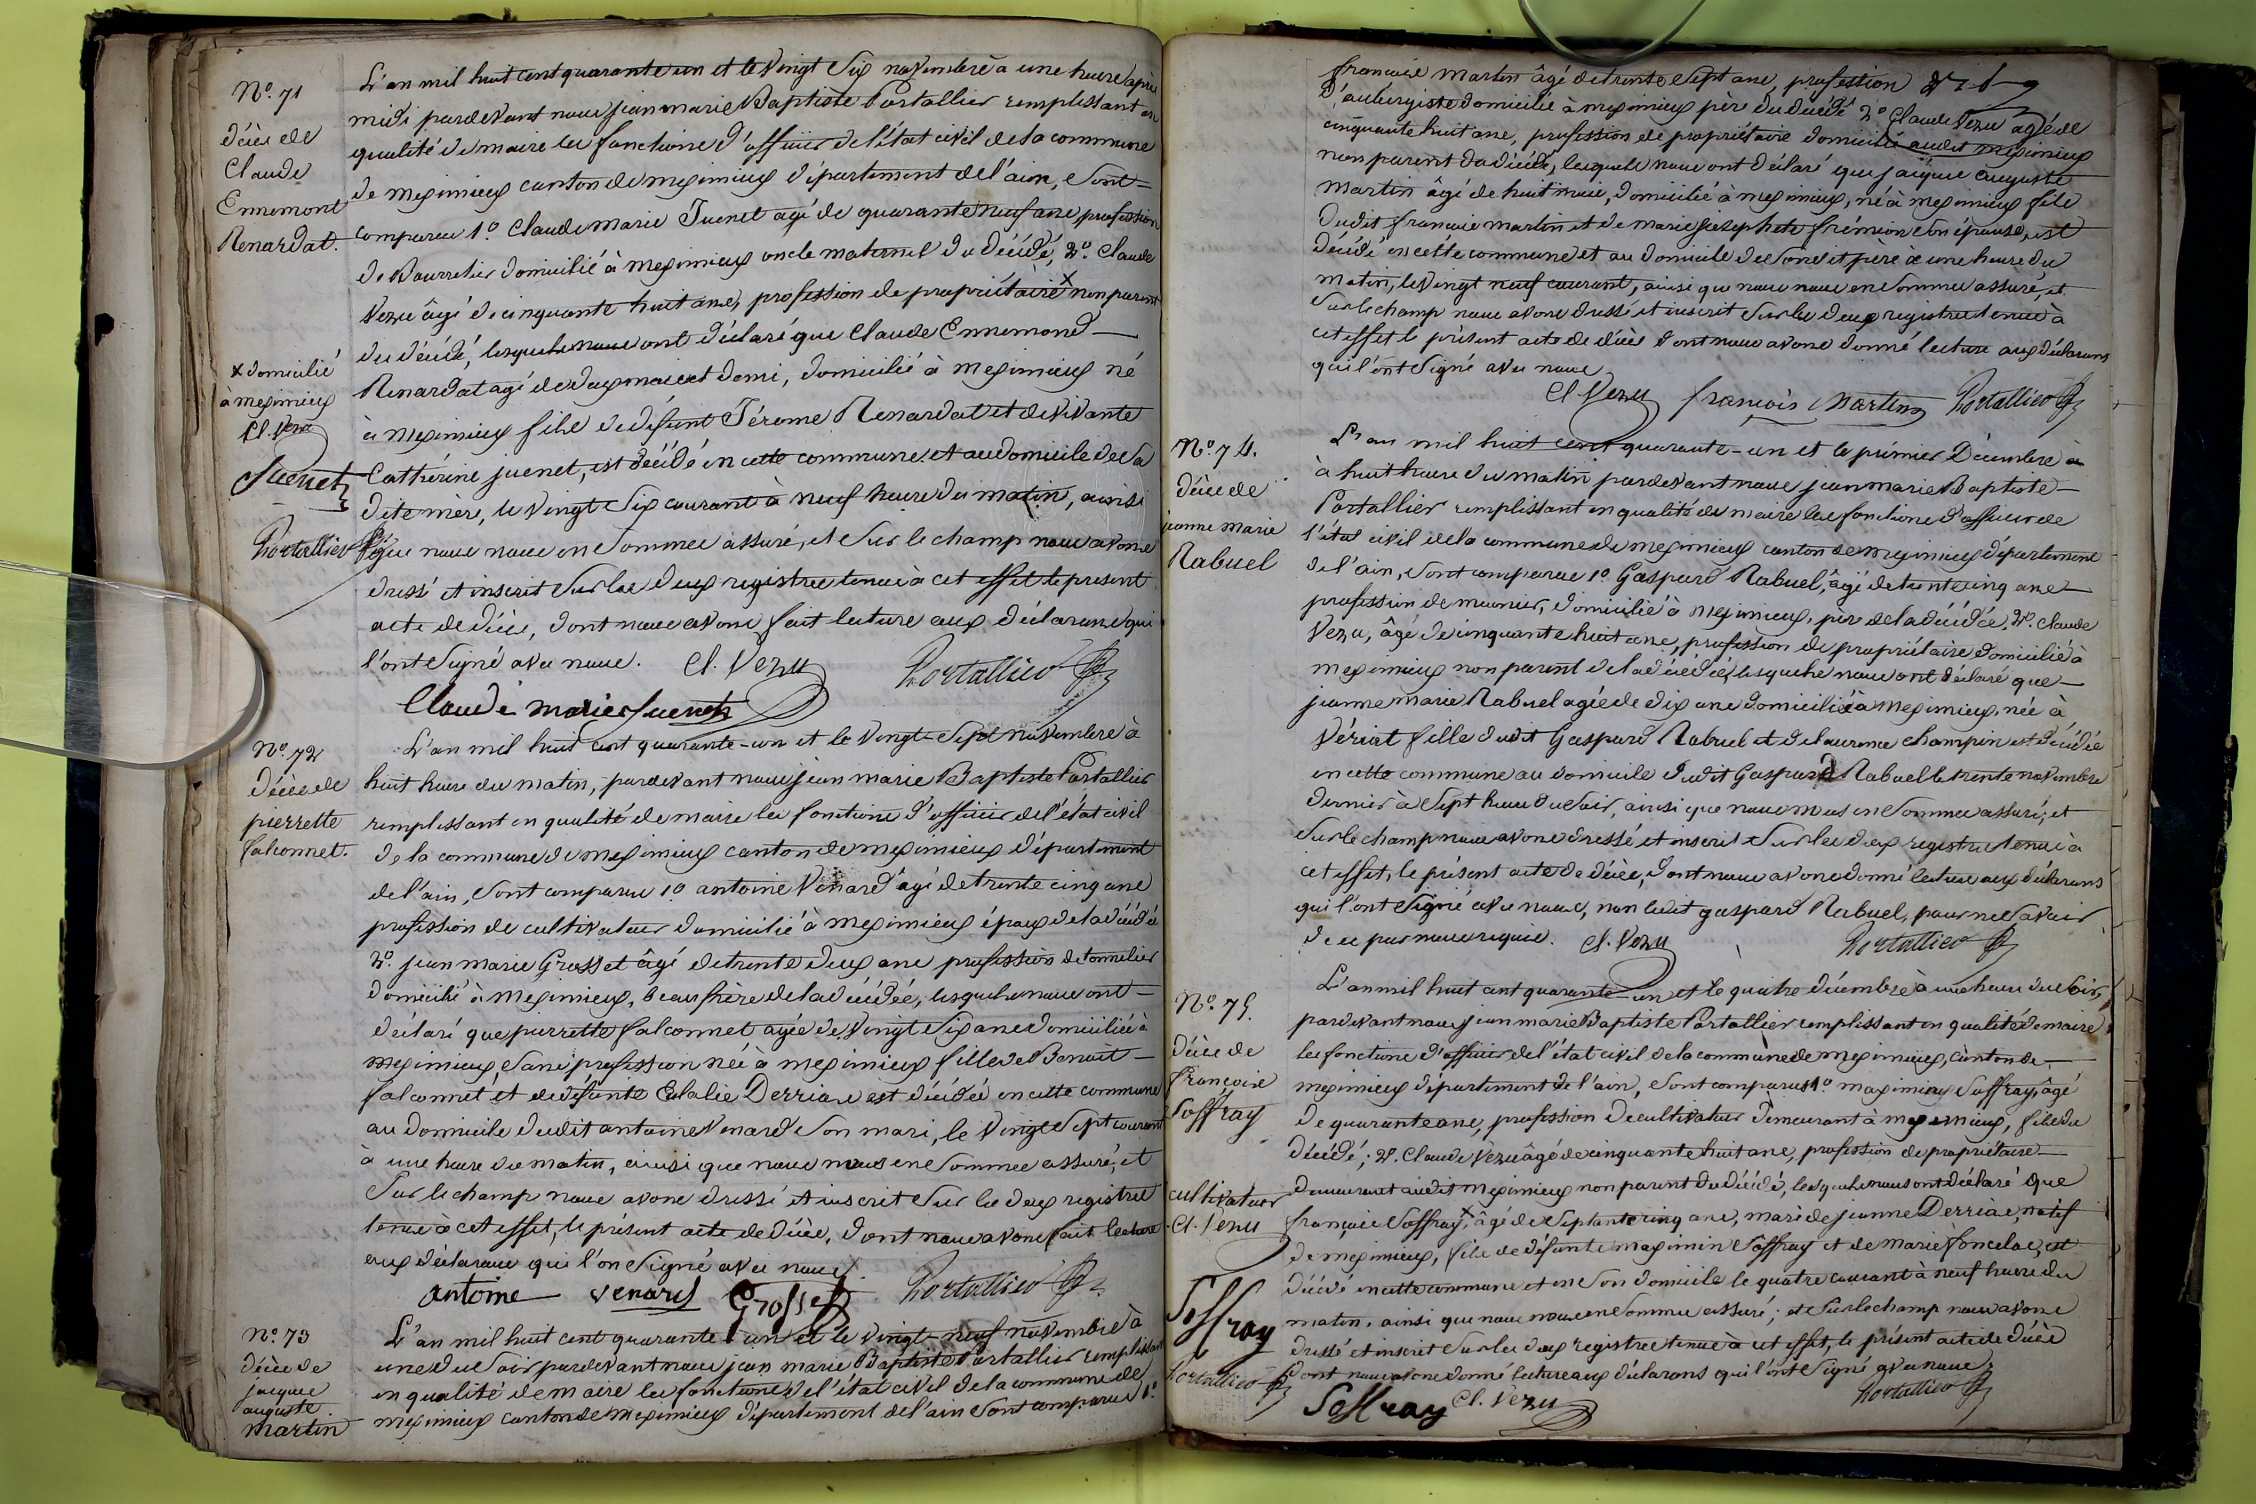 N.o 71
décès de
Claude
Ennemont
Renardat.
L'an mil huit cent quarante un et le vingt six novembre à une heure après
midi pardevant nous jean marie Baptiste Portallier remplissant en
qualité de maire les fonctions d'officier de l'état civil de la commune
de meximieux canton de meximieux département de l'ain, sont
comparus 1.o Claude marie Juenet agé de quarante neuf ans, profession
de Bourrelier domicilié à meximieux oncle maternel du décédé, 2.o Claude
Vezu âgé de cinquante huit ans, profession de propriétaire x non parent
du décédé, lesquels nous ont déclaré que Claude Ennemond
Renardat agé de deux mois et demi, domicilié à meximieux né
à meximieux fils de défunt Jérome Renardat et de vivante
Cathérine juenet, est décédé en cette commune et au domicile de sa
dite mère, le vingt six courant à neuf heure du matin, ainsi
que nous nous en sommes assuré, et sur le champ nous avons
dressé et inscrit sur les deux registres tenus à cet effet le présent
acte de décès, dont nous avons fait lecture aux déclarans qui
l'ont signé avec nous. Cl. Vezu Portallier
Claude marie Juenet
x domicilié
à meximieux
Cl. Vezu
Juenet
Portallier
N.o 72
décès de
pierrette
falconnet.
L'an mil huit cent quarante-un et le vingt-sept novembre à
huit heure du matin, pardevant nous jean marie Baptiste Portallier
remplissant en qualité de maire les fonctions d'officier de l'état civil
de la commune de meximieux canton de meximieux département
de l'ain, sont comparus 1.o antoine Venard âgé de trente cinq ans
profession de cultivateur domicilié à meximieux époux de la décédée
2.o jean marie Grosset âgé de trente deux ans profession de tonnelier
domicilié à meximieux, beau frère de la décédée, lesquels nous ont
déclaré que pierrette falconnet agée de vingt six ans domiciliée à
meximieux, sans profession née à meximieux fille de Benoit
falconnet et de défunte Eulalie Derrias est décédée en cette commune
au domicile dudit antoine Venard son mari, le vingt sept courant
à une heure du matin, ainsi que nous nous en sommes assuré, et
sur le champ nous avons dressé et inscrit sur les deux registres
tenus à cet effet, le présent acte de décès, dont nous avons fait lecture
aux déclarans qui l'on signé avec nous.
antoine venard Grosset Portallier
N.o 73
décès de
jacques
auguste
martin
L'an mil huit cent quarante un et le vingt-neuf novembre à
une du soir pardevant nous jean marie Baptiste Portallier remplissant
en qualité de maire les fonctions de l'état civil de la commune de
meximieux canton de meximieux département de l'ain sont comparus 1.o
françois martin âgé de trente sept ans, profession
d'aubergiste domicilié à meximieux père du décédé 2.o Claude Vezu agé de
cinquante huit ans, profession de propriétaire domicilié audit meximieux
non parent du décédé, lesquels nous ont déclaré que jacques auguste
martin âgé de huit mois, domicilié à meximieux, né à meximieux fils
dudit françois martin et de marie josephete frémion son épouse, est
décédé en cette commune et au domicile de sondit père à une heure du
matin, le vingt neuf courant, ainsi que nous nous en sommes assuré, et
sur le champ nous avons dressé et inscrit sur les deux registres tenus à
cet effet le présent acte de décès dont nous avons donné lecture aux déclarans
qui l'ont signé avec nous
Cl Vezu françois Martin Portallier
N.o 74.
décès de
jeanne marie
Rabuel
L'an mil huit cent quarante-un et le prémier Décembre
à huit heure du matin pardevant nous jean marie Baptiste
Portallier remplissant en qualité de maire les fonctions d'officier de
l'état civil de la commune de meximieux canton de meximieux département
de l'ain, sont comparus 1.o Gaspard Rabuel, âgé de trente cinq ans
profession de meunier, domicilié à meximieux, père de la décédée, 2.o Claude
Vezu, âgé de cinquante huit ans, profession de propriétaire domicilié à
meximieux non parent de la décédée, lesquels nous ont déclaré que
jeanne marie Rabuel agée de dix ans domiciliée à meximieux, née à
Vériat fille dudit Gaspard Rabuel et de laurence champin est décédée
en cette commune au domicile dudit Gaspard Rabuel le trente novembre
dernier à sept heure du soir, ainsi que nous nous en sommes assuré, et
sur le champ nous avons dressé et inscrit sur les deux registres tenus à
cet effet, le présent acte de décès, dont nous avons donné lecture aux déclarans
qui l'ont signé avec nous, non ledit gaspard Rabuel, pour ne savoir
de ce par nous requis. Cl. Vezu Portallier
N.o 75.
décès de
françois
Soffray
L'an mil huit cent quarante-un et le quatre décembre à une heure du soir,
pardevant nous jean marie Baptiste Portallier remplissant en qualité de maire
les fonctions d'officier de l'état civil de la commune de meximieux, canton de
meximieux département de l'ain, sont comparus 1.o maximin Soffray, âgé
de quarante ans, profession de cultivateur demeurant à meximieux, fils du
décédé; 2.o Claude Vezu âgé de cinquante huit ans, profession de propriétaire
demeurant audit meximieux non parent du décédé, lesquels nous ont déclaré que
françois Soffray x, âgé de septante cinq ans, mari de jeanne Derrias, natif
de meximieux, fils de défunts maximin Soffray et de marie foncelas, est
décédé en cette commune et en son domicile le quatre courant à neuf heure du
matin, ainsi que nous nous en sommes assuré; et sur le champ nous avons
dressé et inscrit sur les deux registres tenus à cet effet, le présent acte de décès
dont nous avons donné lecture aux déclarans qui l'ont signé avec nous.
Soffray Cl. Vezu Portallier
cultivateur
Cl. Vezu
Soffray
Portallier